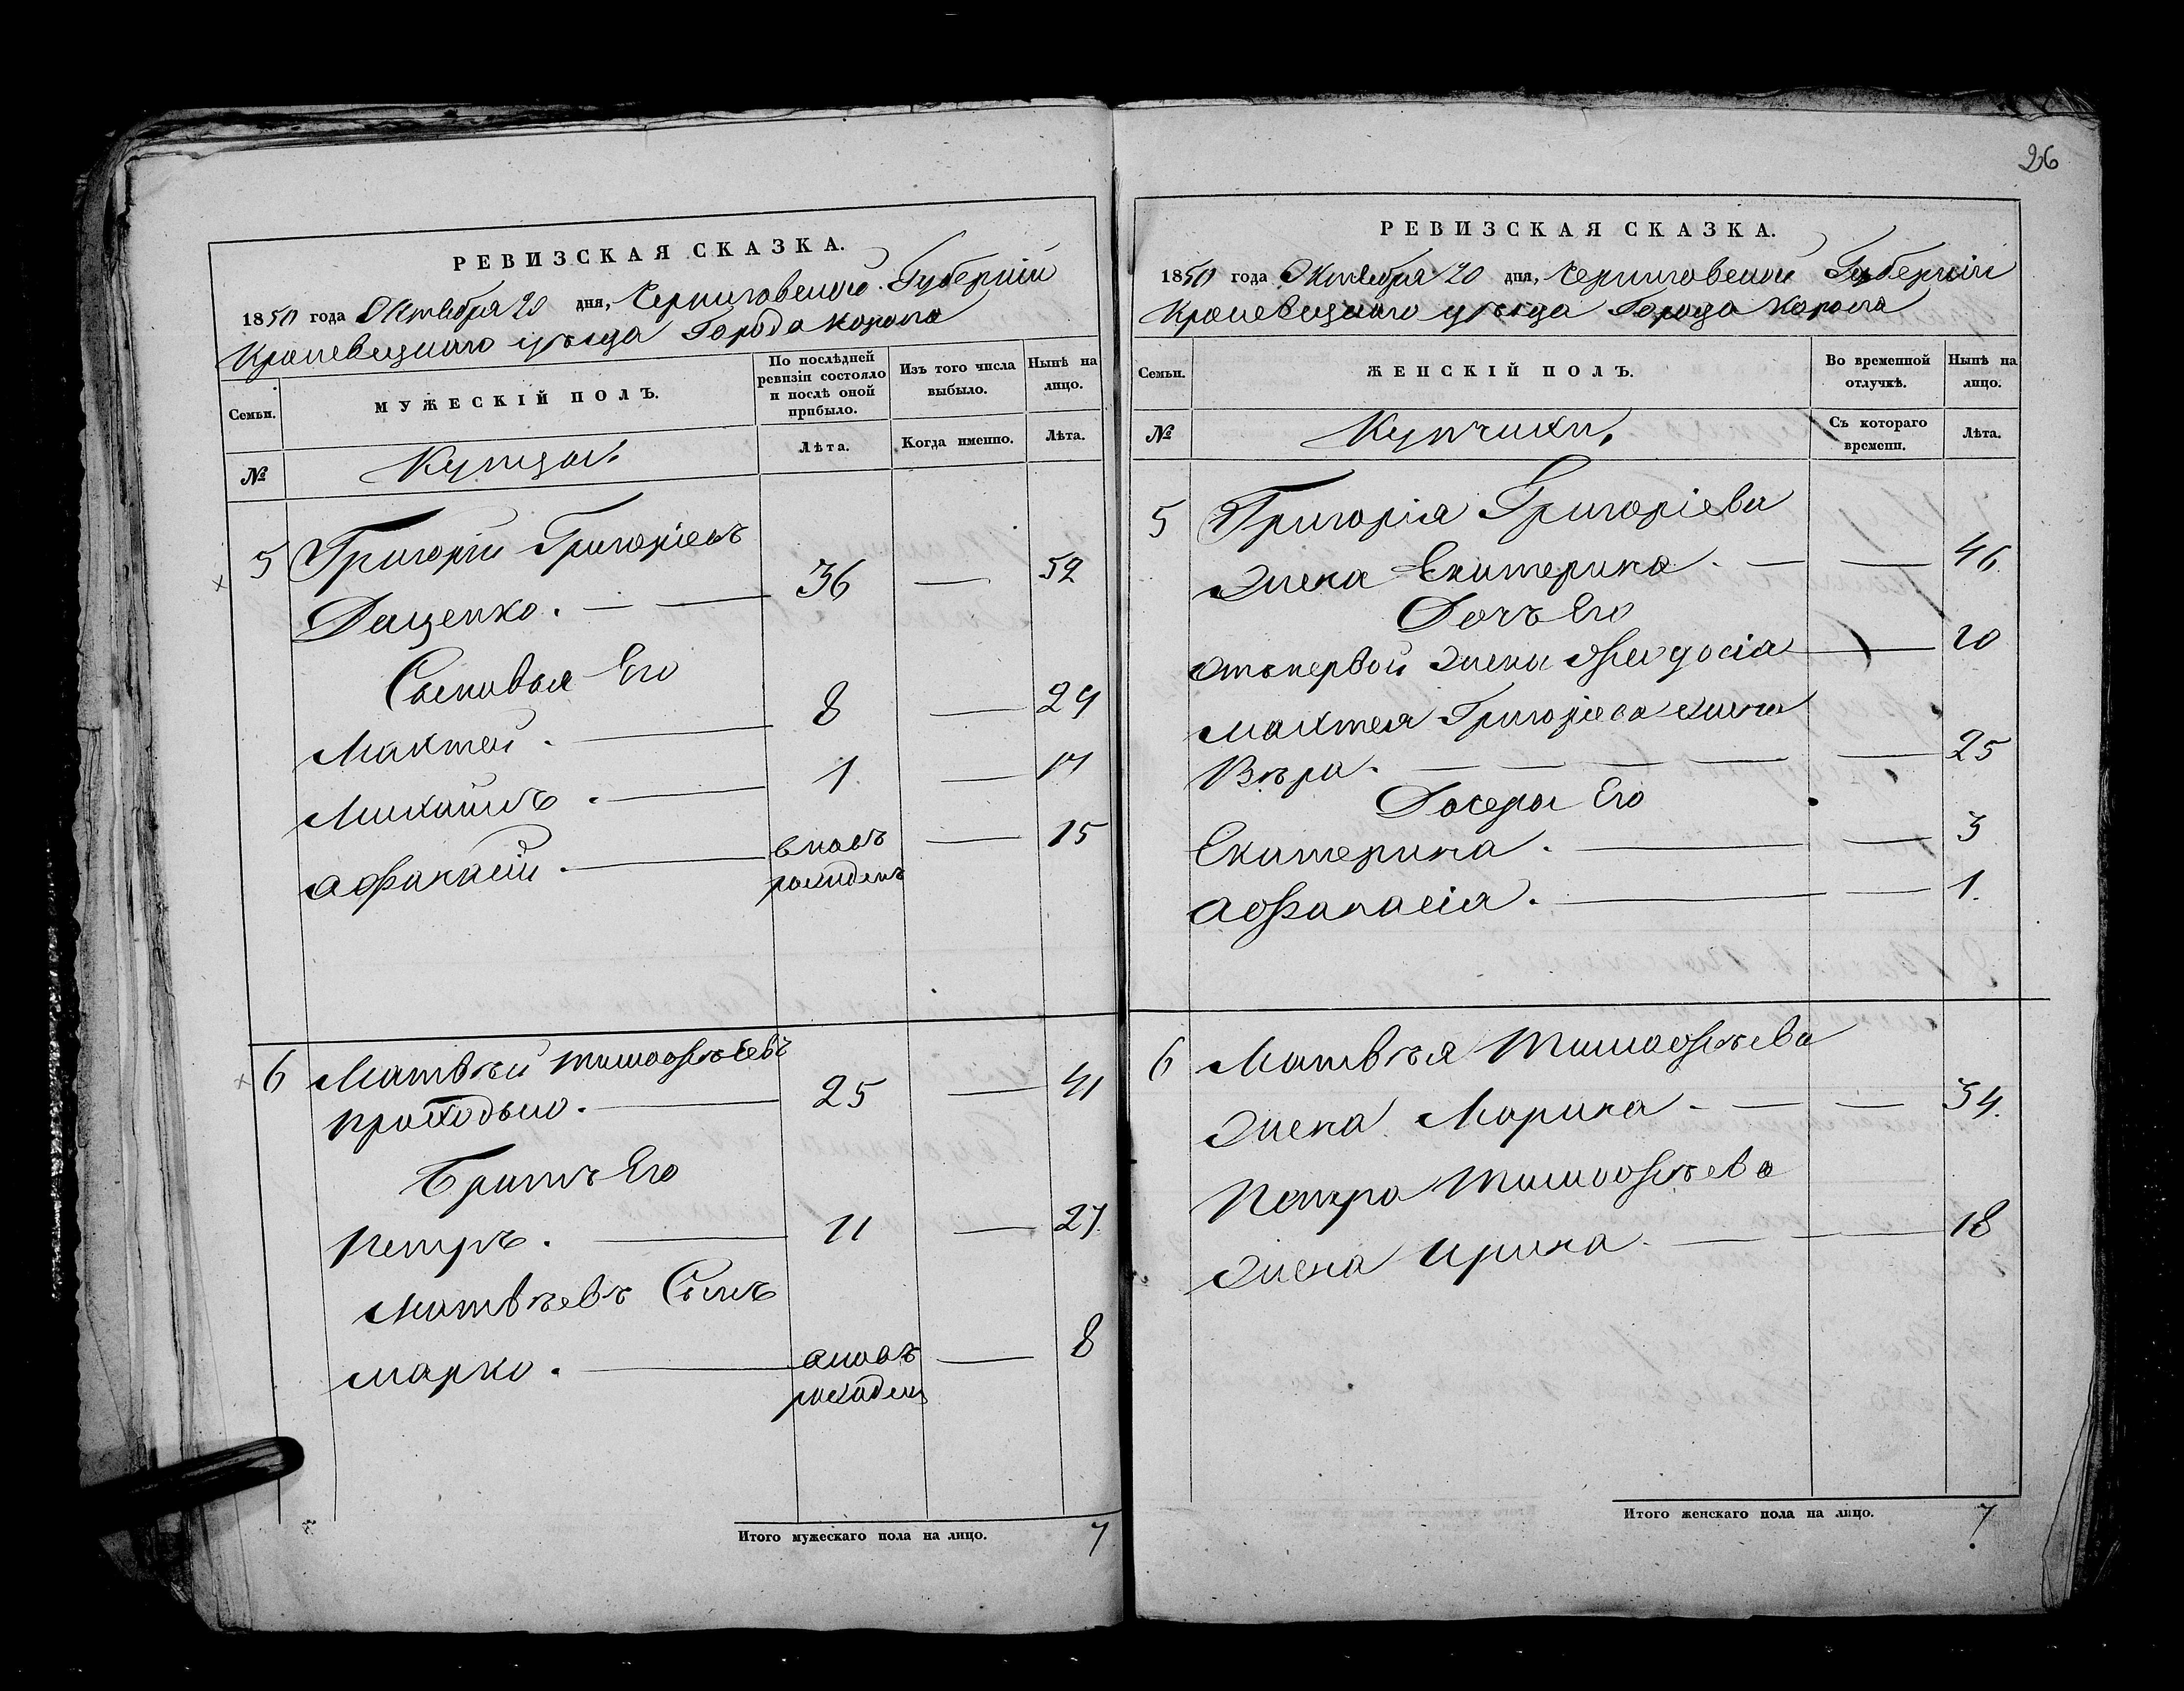 26
РЕВИЗСКАЯ СКАЗКА.
1850 года Октября 20 дня, Черниговской Губернии
Кролевецкаго уѣзда Города Коропа
Семьи.
МУЖЕСКІЙ ПОЛЪ.
По послѣдней ревизіи состояло и послѣ оной прибыло.
Изъ того числа выбыло.
Нынѣ на лицо.
№
Купцы.
Лѣта.
Когда именно.
Лѣта.
5 Григорій Григоріевъ
Даценко. 36 — 52
Сыновья Его
Мактей. 8 — 24
Михаилъ. 1 — 17
Афанасій. вновь рожденъ — 15
6 Матвѣй Тимофѣевъ
Проходько. 25 — 41
Братъ Его
Петръ. 11 — 27
Матвѣевъ Сынъ
Марко. вновь рожденъ — 8
Итого мужескаго пола на лицо. 7
РЕВИЗСКАЯ СКАЗКА.
1850 года Октября 20 дня, Черниговской Губерніи
Кролевецкаго уѣзда Города Коропа
Семьи.
ЖЕНСКІЙ ПОЛЪ.
Во временной отлучкѣ.
Нынѣ на лицо.
№
Купчихи.
Съ котораго времени.
Лѣта.
5 Григорія Григоріева
Жена Екатерина. — — 46
Дочь Его
Отъ первой Жены Феодосія — 20
Мактея Григоріева жена
Вѣра. — — 25
Дочери Его
Екатерина. — — 3
Афанасія. — — 1.
6 Матвѣя Тимофѣева
Жена Марина — — 34.
Петра Тимофѣева
Жена Ирина. — — 18
Итого женскаго пола на лицо. 7